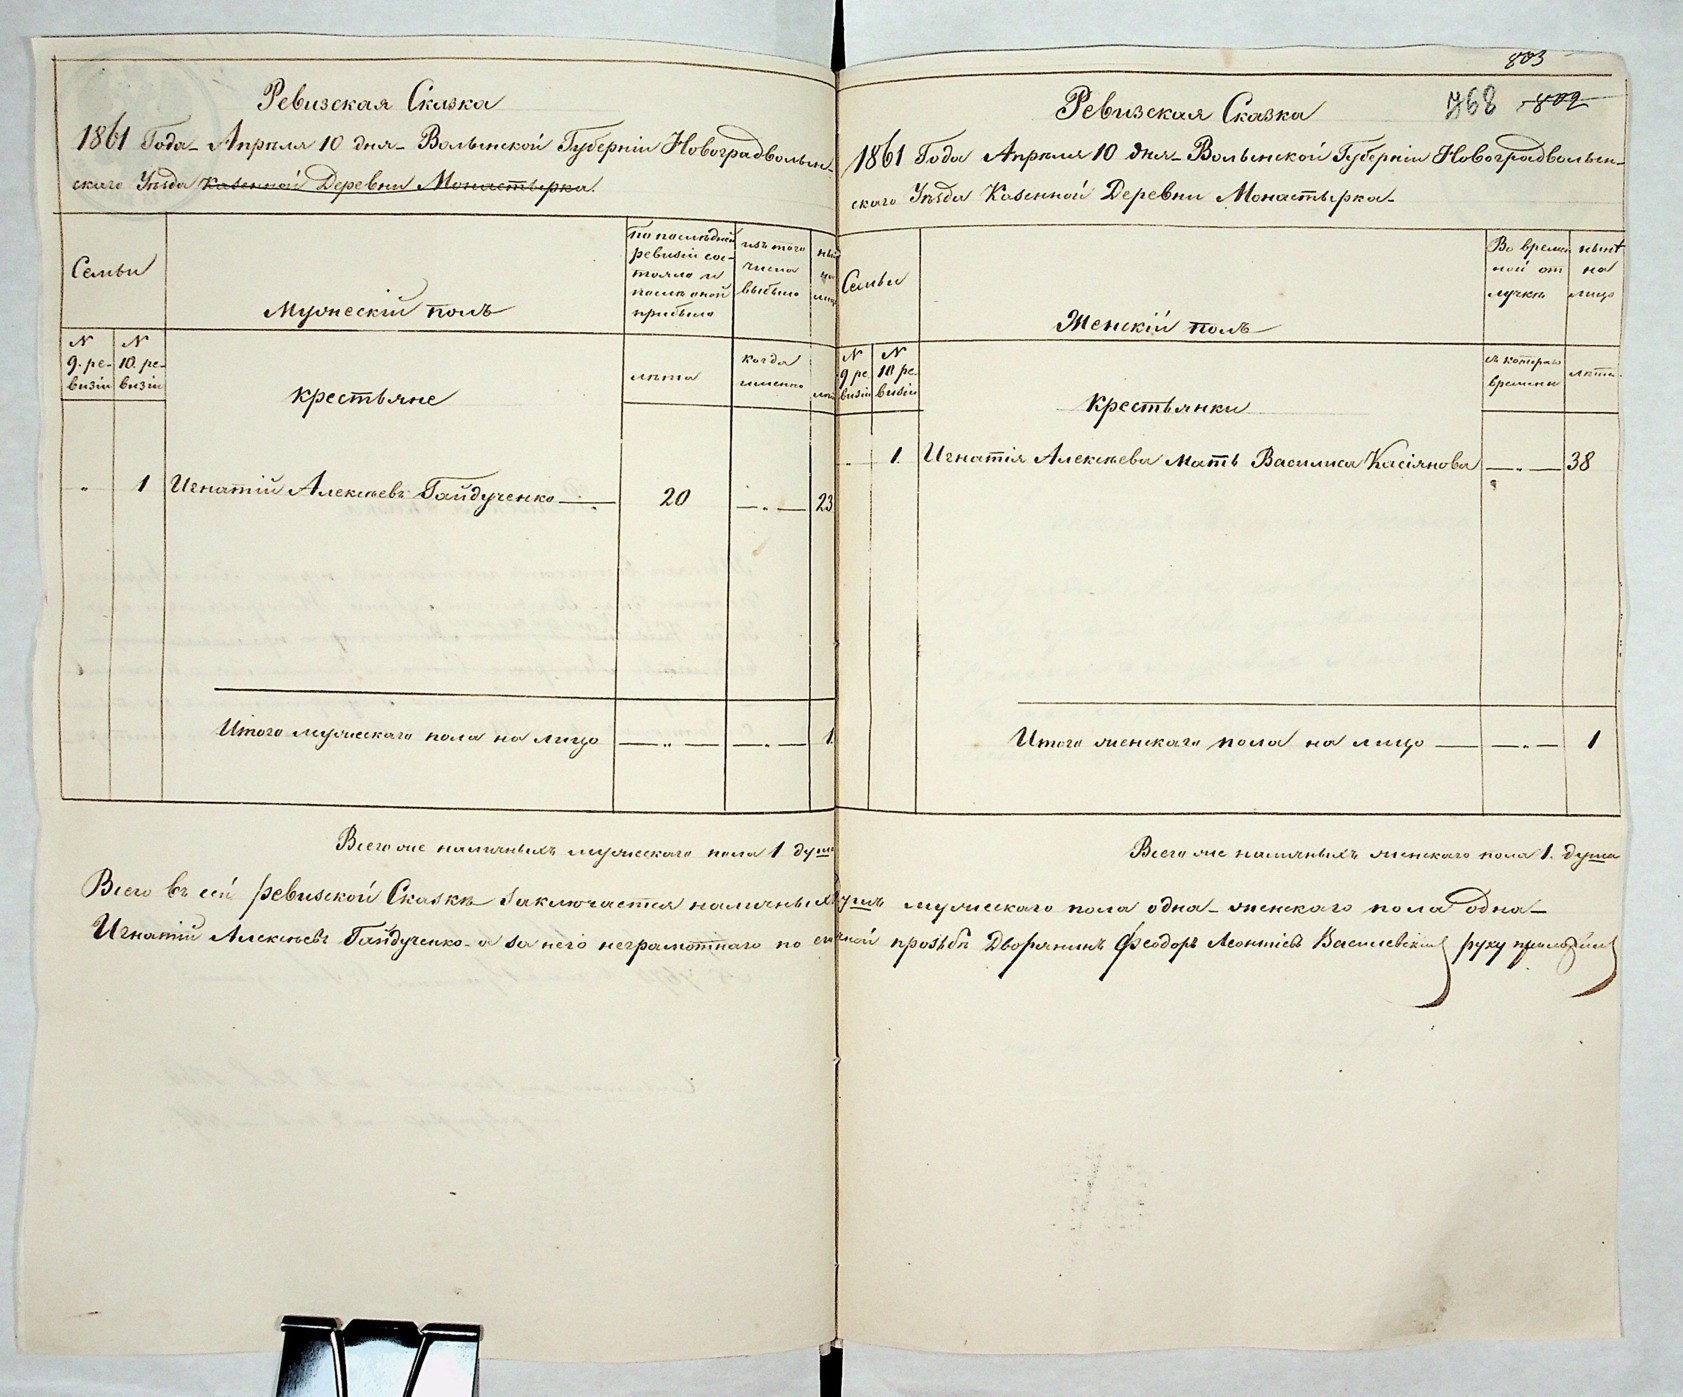 Ревизская Сказка
1861 Года Апрѣля 10 дня Волынской Губерніи Новоградволын-
скаго Уѣзда Казенной Деревни Монастырка.
Семьи
Мужескій полъ
по послѣдней
ревизіи сос-
тояло и
послѣ оной
прибыло
изъ того
числа
выбыло
N
9. ре-
визіи
N
10. ре-
визіи
крестьяне
лѣта
когда
именно
" 1 Игнатій Алексѣевъ Гайдученко — 20 — " — 23
Итого мужескаго пола на лицо — " — — " — 1
Всего же наличныхъ мужескаго пола 1 душа
803
768 802
Ревизская Сказка
1861 Года Апрѣля 10 дня Волынской Губерніи Новоградволын-
скаго Уѣзда Казенной Деревни Монастырка
Семьи
Женскій полъ
Во времен
ной от
лучкѣ
нынѣ
на
лицо
N
9 ре
визіи
N
10 ре-
визіи
Крестьянки
съ котораго
времени
лѣта
1. Игнатія Алексѣева мать Василиса Касіянова — " — 38
Итого женскаго пола на лицо — — " — 1
Всего же наличныхъ женскаго пола 1. душа
Всего въ сей ревизской Сказкѣ заключается наличныхъ душъ мужескаго пола одна женскаго пола одна
Игнатій Алексѣевъ Гайдученко а за него неграмотнаго по его личной прозьбѣ Дворянинъ Феодоръ Леонтіевъ Василевскій руку приложилъ